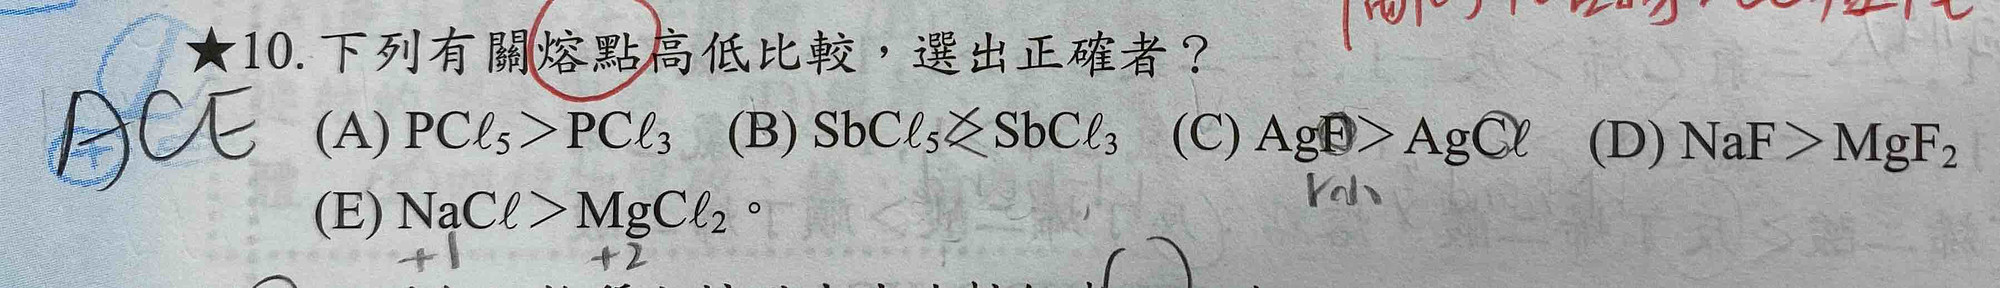 ★10. 下列有關熔點高低比較，選出正確者？
ACE (A) PCℓ₅＞PCℓ₃ (B) SbCℓ₅＞SbCℓ₃ (C) AgF＞AgCℓ (D) NaF＞MgF₂
(E) NaCℓ＞MgCℓ₂。
+1 +2